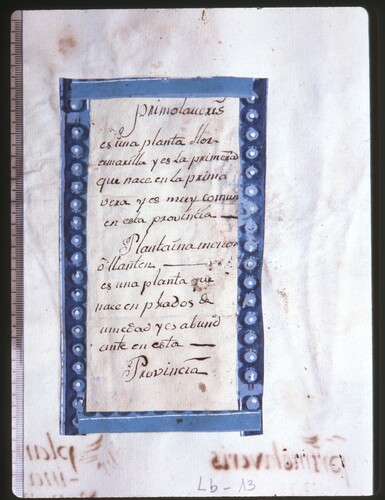 Primolaueris
es una planta flor
amarilla y es la primera
que nace en la prima
vera y es muy comun
en esta provincia —
Plantaina menor
o llanten —
es una planta que
nace en prados de
umedad y es abund
ante en esta —
Provincia
Lb - 13